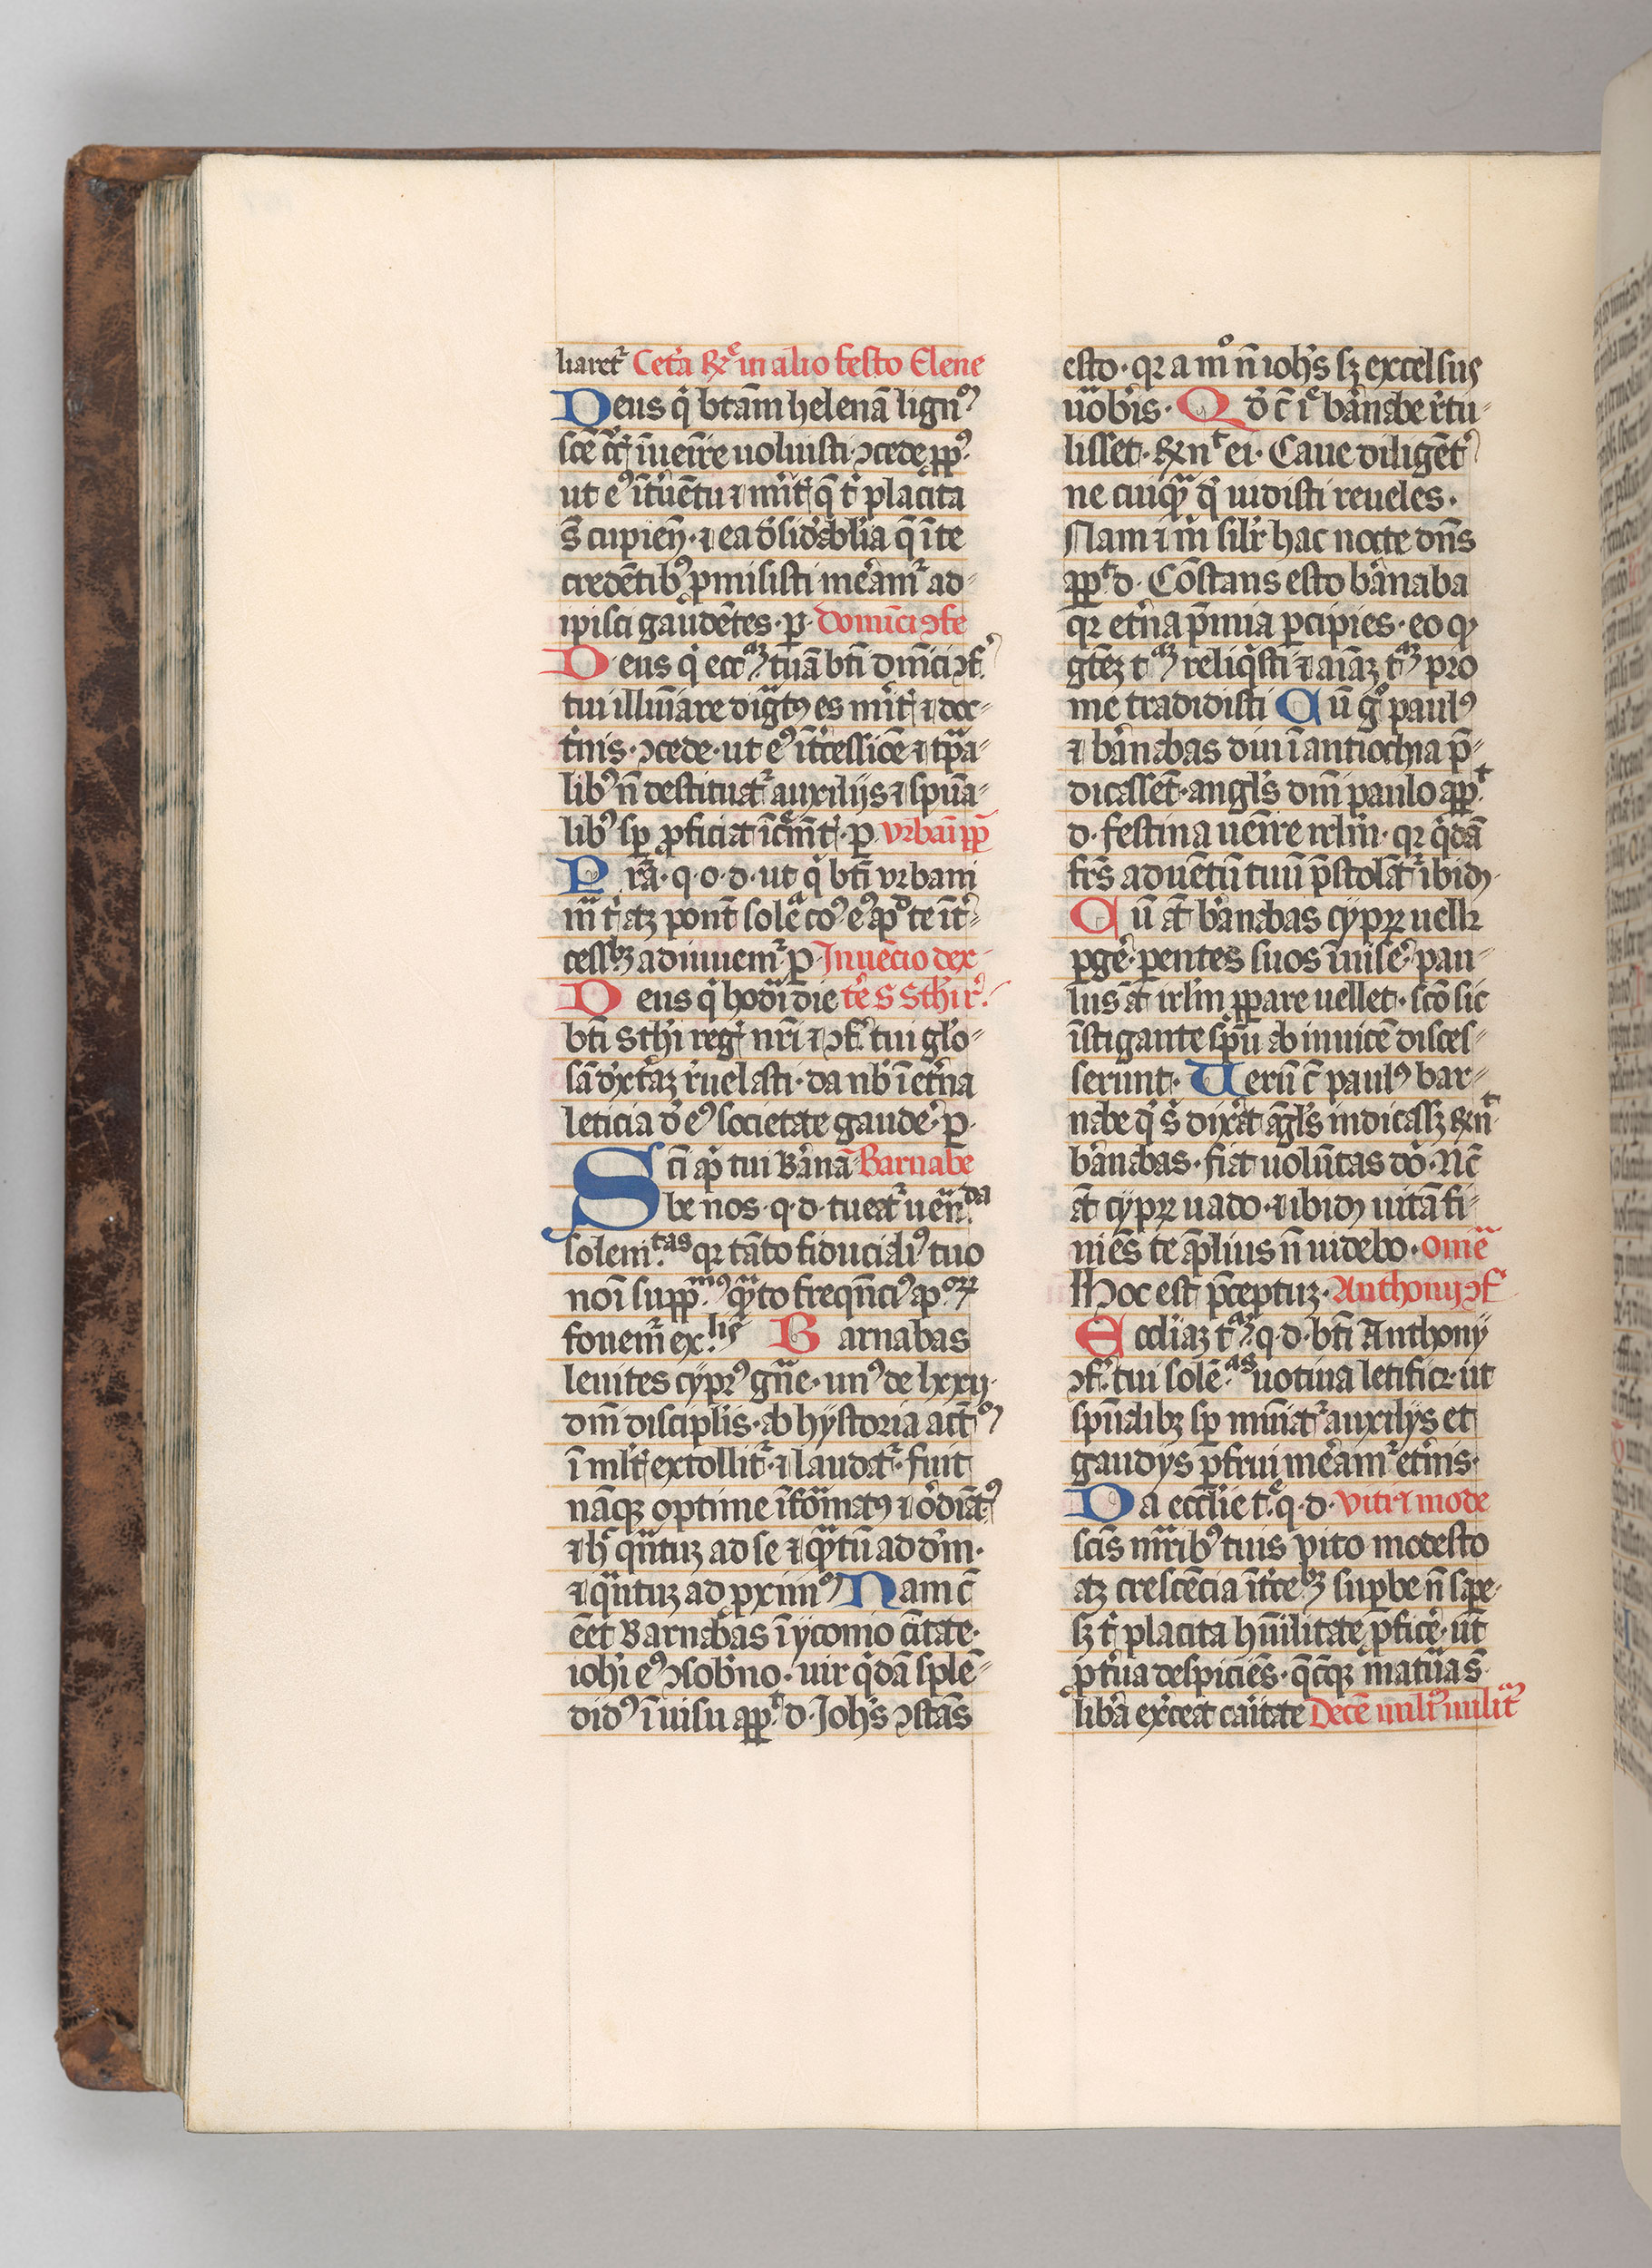 liaret᷑ Cet̾a Rx͛ in alio festo Elene
Deus q̇ btām helenā lignͦꝝ
sc̄e ct̄ꝭ īueīre uoluisti · ꝯcede ꝓpꝰ
ut eꝰ īt̾uentu ⁊ mītꝭ q̄ t̾ placita
s̄ cupien̄ · ⁊ ea d̾sid̾ablia q̄ ī te
credētibꝰ ꝓmisisti me̾am᷑ ad-
ipisci gaudētes · p · Dominici ꝯfe
Deus q̇ ecc tuā bti dm̄ici ꝯf̾
tui illuīare dig̾tꝰ es mītꝭ ⁊ doc-
t̾nis · ꝯcede · ut eꝰ īt̾cessiōe ⁊ tp̄a-
libꝰ n̄ destituat᷑ auxilijs ⁊ sp̄ua-
libꝰ sp̄ ꝓficiat īcrem̄tꝭ · p · vrbani pp̄
Pr̄a · q · o · d · ut q̇ bti vrbani
m̄ t̾ atqꝫ pont̄ sole co eꝰ ap̾ te īt̾-
cess adiuuem᷑ p · Inuēcio dex-
Deus q̇ hod̾i die te̾ s Sth̾i r̾
bti Sth̾i regꝭ nr̄i ⁊ ꝯf̾ tui glo-
sā dxt̾aꝫ r̾uelasti · da nb̾ ī et̾na
leticia d̾ eꝰ societate gaude̾ · p ·
Sc̄ti ap̾ tui Bar̾na Barnabe
be nos · q · d · tueat᷑ uen̄ · da
solem̄ · tas qꝛ tāto fiduciali tuo
noī supp qꝫto freqn̄ciꝰ ap
fouem᷑ ex · lijs Barnabas
leuites cyprꝰ gn̄e · unꝰ de lxxij ·
dn̄i disciplis · ab hystoria act
ī mltꝭ extollit᷑ · ⁊ laudat᷑ · fuit
nāqꝫ optime īformatꝰ ⁊ ordīatꝰ
⁊ h̾ qntuꝫ ad se ⁊ qtū ad dm̄ ·
⁊ qntuꝫ ad ꝓximꝰ Nam c̄
eēt Barnabas ī ycomio cītate ·
ioh̾i eꝰ ꝯsobrno · uir qdā splē-
didꝰ ī uisu app · d · Joh̾s ꝯstās
esto · qꝛ a mͦ n̄ ioh̾s sꝫ excelsus
uob̾is · Qd̾ c̄ ī ba̾nabe r̾tu-
lisset · Rn̄ ei · Caue diligēt̾
ne cuiqꝫ q̇ uidisti reueles ·
Nam ⁊ m̾ sil̾r hac nocte dn̄s
app d · Cōstans esto ba̾naba
qꝛ et̾na p̄mia ꝑcipies · eo qꝫ
gtēꝫ t reliq̇sti ⁊ aīaꝫ t pro
me tradidisti Cū gͦ paulꝰ
⁊ ba̾nabas diu ī antiochia p̄-
dicasset · angl̾s dn̄i paulo app
d · festina uenīre irl̾m · qꝛ q̇dā
fr̄s aduētū tuū p̄stolāt᷑ ibidꝫ ·
Cū āt ba̾nabas cyprꝫ uell
ꝑge̾ · ꝑentes suos īuise̾ · pau-
lus āt irl̾m ꝓpꝑare uellet · sc̄o sic
īstigante sp̄u ab inuicē disces-
serunt · Uerū c̄ paulꝰ bar-
nabe q̇ s̾ dixat āgl̾s indicassꝫ Rn̄
ba̾nabas · fiat uolūtas dn̄i · Nc̄
āt cyprꝫ uado · ⁊ ibidꝫ uitā fi-
niēs te āplius n̄ uidebo · omē
Hoc est p̄ceptuꝫ · Anthonij ꝯf̾
Eccliaꝫ t · q · d · bti Anthonij
ꝯf̾ tui solē · as uotiua letificꝫ · ut
sp̄ualibꝫ sp̄ muīat᷑ auxilijs et
gaudijs ꝑfrui me̾am᷑ et̾nis ·
Da ecclie t · q · d · viti ⁊ mode
scis mr̄ibꝰ tuis vito modesto
atqꝫ crescēcia īt̾ce supbe n̄ sape
sꝫ t̾ placita hūilitate ꝓfice̾ · ut
p̾t̾ua despiciēs · q̄cūqꝫ matua s̄
liba̾ exce̾at ca̾itate Decē mil̾ milit̾